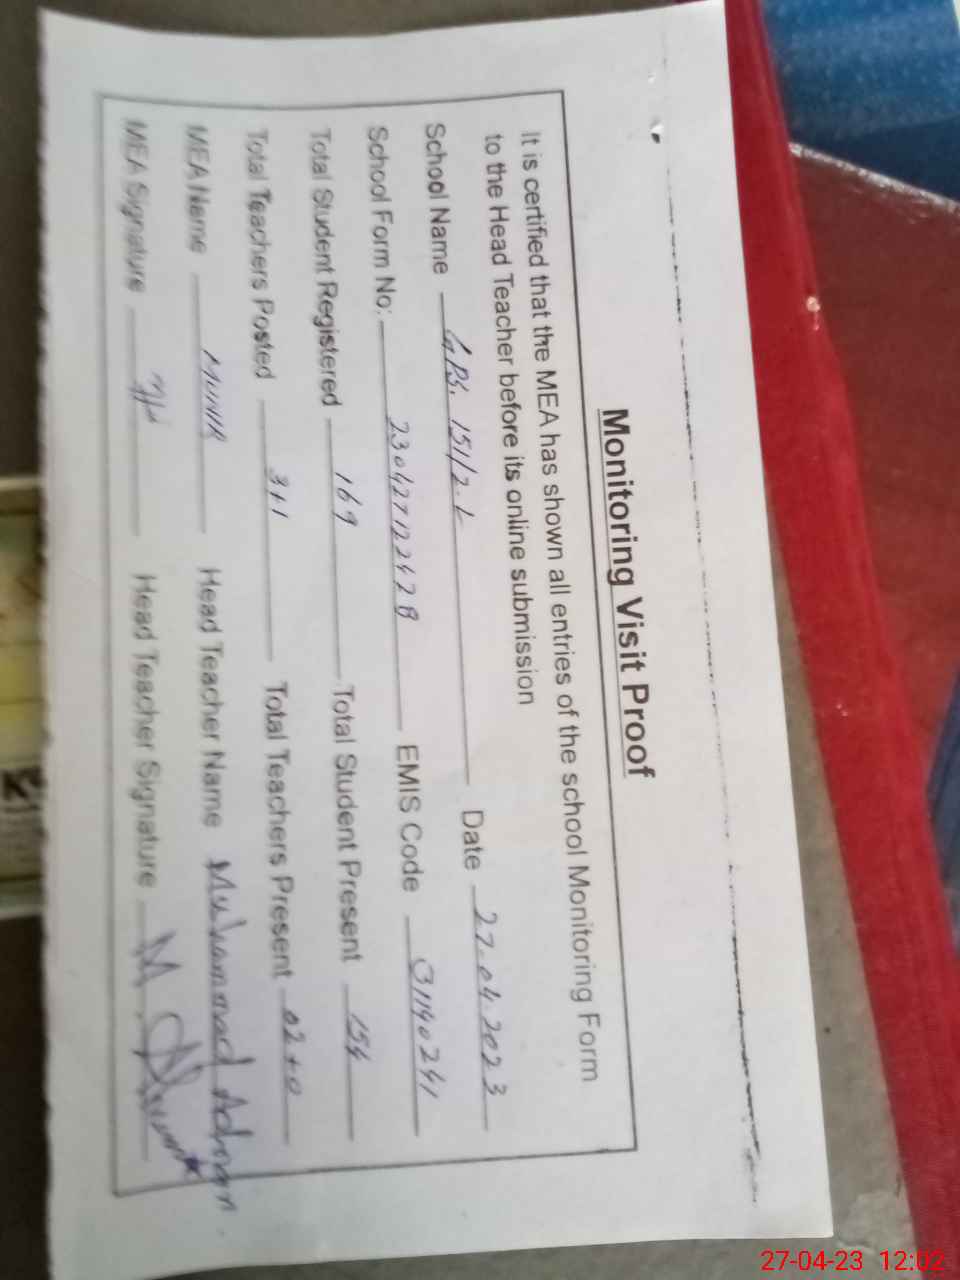 Monitoring Visit Proof
It is certified that the MEA has shown all entries of the school Monitoring Form
to the Head Teacher before its online submission
School Name GPS. 151/2.L Date 27.04.2023
School Form No: 230427122428 EMIS Code 31140241
Total Student Registered 169 Total Student Present 154
Total Teachers Posted 3+1 Total Teachers Present 02+0
MEA Name MUNIR Head Teacher Name Muhammad Adnan
MEA Signature Head Teacher Signature
27-04-23 12:02